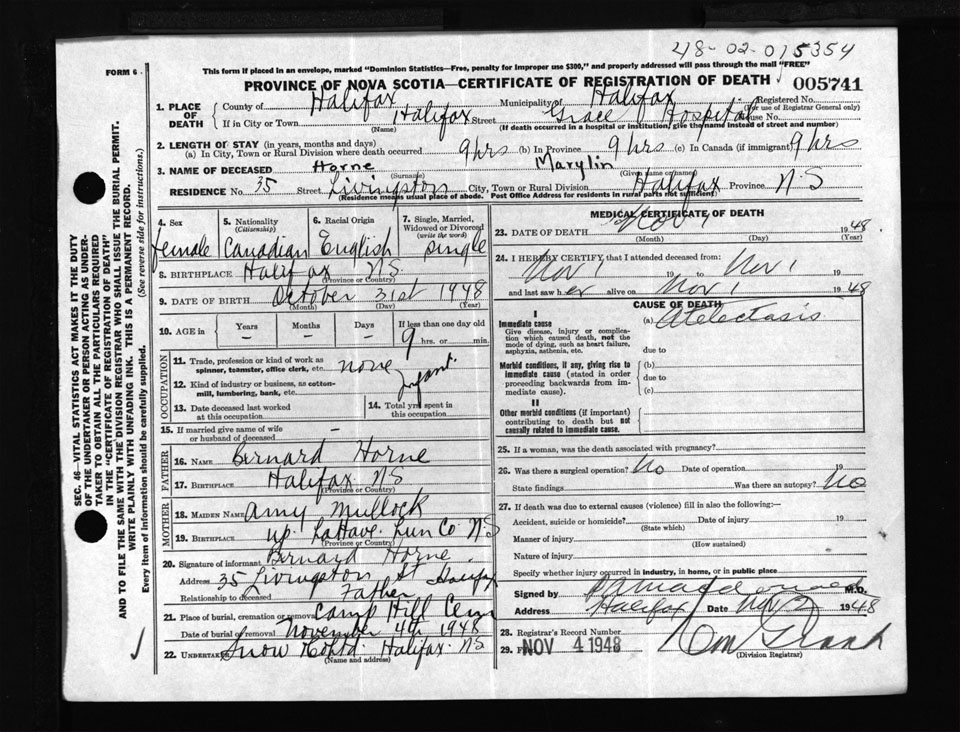 48-02-015354
FORM 6
This form if placed in an envelope, marked "Dominion Statistics—Free, penalty for improper use $300," and properly addressed will pass through the mail "FREE"
PROVINCE OF NOVA SCOTIA—CERTIFICATE OF REGISTRATION OF DEATH 005741
SEC. 46—VITAL STATISTICS ACT MAKES IT THE DUTY
OF THE UNDERTAKER OR PERSON ACTING AS UNDER-
TAKER TO OBTAIN ALL THE PARTICULARS REQUIRED
IN THE "CERTIFICATE OF REGISTRATION OF DEATH"
AND TO FILE THE SAME WITH THE DIVISION REGISTRAR WHO SHALL ISSUE THE BURIAL PERMIT.
WRITE PLAINLY WITH UNFADING INK. THIS IS A PERMANENT RECORD.
Every item of information should be carefully supplied. (See reverse side for instructions.)
1. PLACE OF DEATH County of Halifax Municipality of Halifax Registered No.
(For use of Registrar General only)
If in City or Town Halifax Street Grace Hospital House No.
(Name) (If death occurred in a hospital or institution, give the name instead of street and number)
2. LENGTH OF STAY (in years, months and days)
(a) In City, Town or Rural Division where death occurred 9 hrs (b) In Province 9 hrs (c) In Canada (if immigrant) 9 hrs
3. NAME OF DECEASED Horne Marylin
(Surname) (Given name or names)
RESIDENCE No. 35 Street Livingston City, Town or Rural Division Halifax Province N-S
(Residence means usual place of abode. Post Office Address for residents in rural parts not sufficient)
4. Sex female
5. Nationality (Citizenship) Canadian
6. Racial Origin English
7. Single, Married, Widowed or Divorced (write the word) single
8. BIRTHPLACE Halifax N.S.
(Province or Country)
9. DATE OF BIRTH October 31st 1948
(Month) (Day) (Year)
10. AGE in Years – Months – Days – If less than one day old 9 hrs. or min.
OCCUPATION
11. Trade, profession or kind of work as spinner, teamster, office clerk, etc. none
12. Kind of industry or business, as cotton-mill, lumbering, bank, etc. Infant.
13. Date deceased last worked at this occupation
14. Total yrs spent in this occupation
15. If married give name of wife or husband of deceased –
FATHER
16. NAME Bernard Horne
17. BIRTHPLACE Halifax NS
(Province or Country)
MOTHER
18. MAIDEN NAME Amy Mullock
19. BIRTHPLACE up. LaHave Lun Co N-S
(Province or Country)
20. Signature of informant Bernard Horne
Address 35 Livingston St Halifax
Relationship to deceased Father
21. Place of burial, cremation or removal Camp Hill Cem
Date of burial or removal November 4th 1948
22. Undertaker Snow Halifax NS
(Name and address)
MEDICAL CERTIFICATE OF DEATH
23. DATE OF DEATH Nov 1 1948
(Month) (Day) (Year)
24. I HEREBY CERTIFY, that I attended deceased from:
Nov 1 19 to Nov 1 19
and last saw her alive on Nov 1 1948
CAUSE OF DEATH
I
Immediate cause (a) Atelectasis
Give disease, injury or complication which caused death, not the mode of dying, such as heart failure, asphyxia, asthenia, etc.
due to
Morbid conditions, if any, giving rise to immediate cause (stated in order proceeding backwards from immediate cause).
(b)
due to
(c)
II
Other morbid conditions (if important) contributing to death but not causally related to immediate cause.
25. If a woman, was the death associated with pregnancy?
26. Was there a surgical operation? No Date of operation 19
State findings Was there an autopsy? No
27. If death was due to external causes (violence) fill in also the following:—
Accident, suicide or homicide? Date of injury 19
(State which)
Manner of injury
(How sustained)
Nature of injury
Specify whether injury occurred in industry, in home, or in public place
Signed by M.D.
Address Halifax Date Nov 2 1948
28. Registrar's Record Number
29. NOV 4 1948
(Division Registrar)